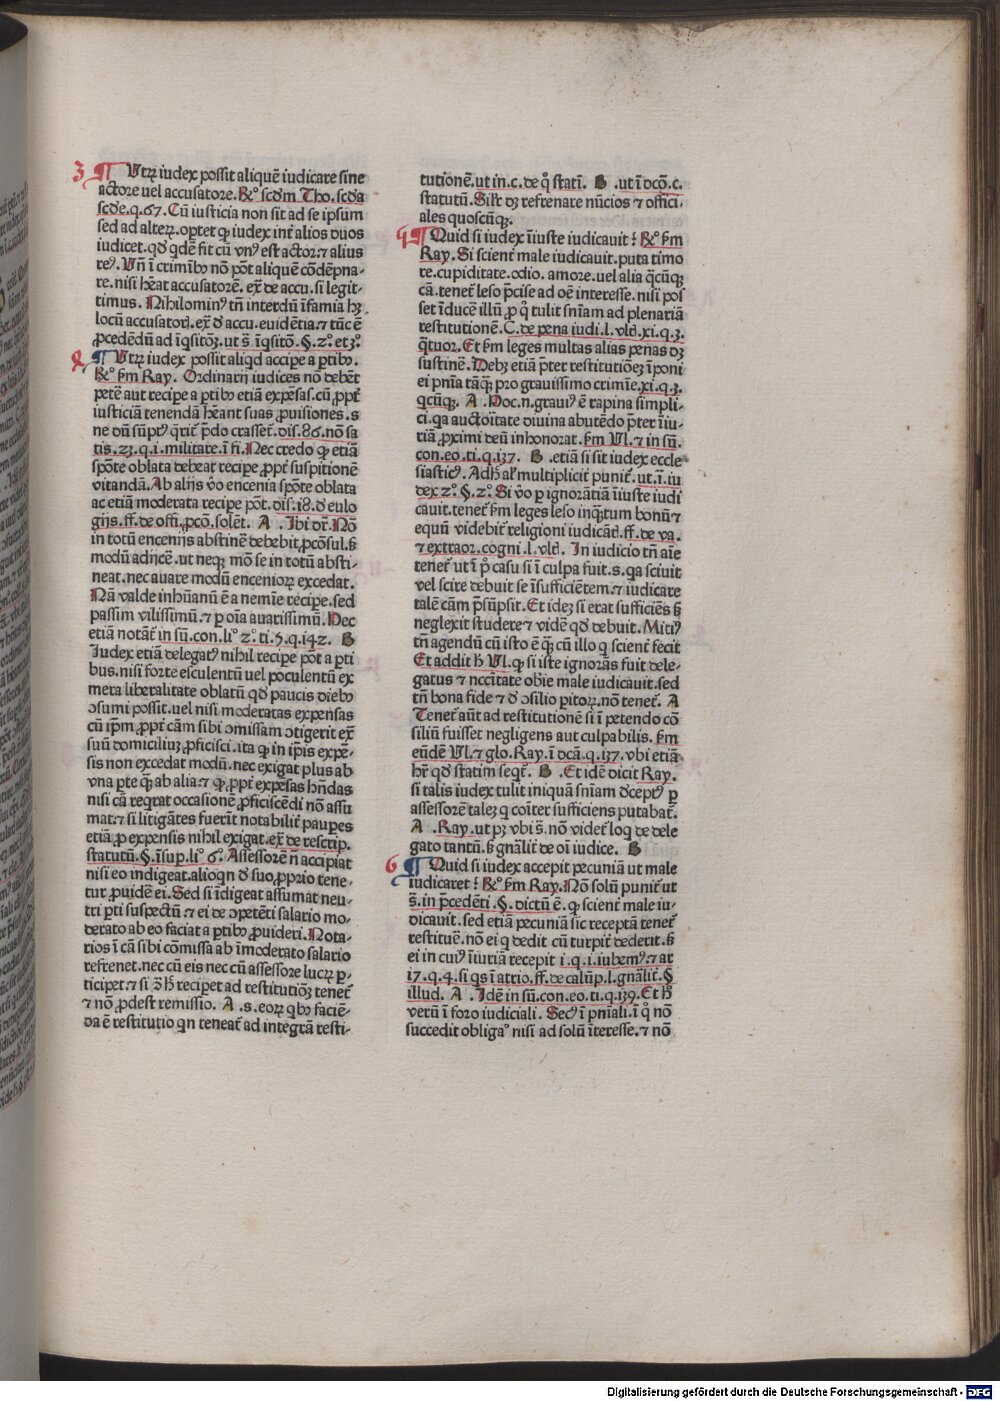 3 ¶ Utrꝝ iudex possit aliquē iudicare sine
actore uel accusatore. ℞º scd̄m Tho. scd̄a
scd̄e. q. 67. Cū iusticia non sit ad se ipsum
sed ad alteꝝ. optet ꝙ iudex int̄ alios duos
iudicet. qd̄ qdē fit cū vnꝰ est actor. ⁊ alius
reꝰ. Vn̄ ī crimībꝰ nō pōt aliquē cōdēpna-
re. nisi hēat accusatorē. ex̄ de accu. si legit-
timus. Nihilominꝰ tn̄ interdū īfamia hꝫ
locū accusatoꝝ. ex̄ ꝺ accu. euidētia. ⁊ tūc ē
ꝓcedēdū ad īqsitōꝫ. ut s̄. īqsitō. §. 2º. et 3º.
¶ Utrꝝ iudex possit aliqd accipe a ptibꝰ.
℞º ẜm Ray. Ordinarij iudices nō debēt
petē aut recipe a ptibꝰ etiā expēsas. cū ꝓpt̄
iusticiā tenendā hēant suas ꝓuisiones. s
ne dū sūptꝰ q̄rit̄ p̄do crasset̄. dis. 86. nō sa
tis. 23. q. i. militare. ī fi. Nec credo ꝙ etiā
spōte oblata debeat recipe ꝓpt̄ suspitionē
vitandā. Ab alijs v̊o encenia spōte oblata
ac etiā moderata recipe pōt. dis. i8. ꝺ eulo
gijs. ff. de offi. ꝓcō. solēt. A . Ibi dr̄. Nō
in totū encenijs abstinē debebit ꝓcōsul. ẜ
modū adijcē. ut neqꝫ mō se in totū absti-
neat. nec auare modū encenioꝝ excedat.
Nā valde inhūanū ē a nemīe recipe. sed
passim vilissimū. ⁊ p oīa auarissimū. Nec
etiā notāt̄ in sū. con. liº 2º. ti. 5. q. i42. B
Iudex etiā delegatꝰ nihil recipe pōt a pti
bus. nisi forte esculentū uel poculentū ex
mera liberalitate oblatū qd̄ paucis diebꝰ
ɔsumi possit. uel nisi moderatas expensas
cū ip̄m ꝓpt̄ cām sibi ɔmissam ɔtigerit ex̄
suū domiciliuꝫ ꝓficisci. ita ꝙ in ip̄is expē-
sis non excedat modū. nec exigat plus ab
vna pte q̄ꝫ ab alia. ⁊ ꝙ ꝓpt̄ expēsas hn̄das
nisi cā reqrat occasionē ꝓficiscēdi nō assu
mat. ⁊ si litigātes fuerīt notabilit̄ paupes
etiā ꝓ expensis nihil exigat. ex̄ de rescrip.
statutū. §. īsup. liº 6º. Assessorē n̄ accipiat
nisi eo indigeat. alioqn ꝺ suo ꝓprio tene-
tur ꝓuidē ei. Sed si īdigeat assumat neu-
tri pti suspectū ⁊ ei de ɔpetēti salario mo-
derato ab eo faciat a ptibꝰ ꝓuideri. Nota-
rios ī cā sibi cōmissa ab īmoderato salario
refrenet. nec cū eis nec cū assessore lucꝝ p-
ticipet. ⁊ si ɔ̄ h̄ recipet ad restitutiōꝫ tenet̄
⁊ nō ꝓdest remissio. A . s. eoꝝ qbꝰ faciē-
da ē restitutio qn teneat̄ ad integrā resti-
tutionē. ut in. c. de q̊ stati. B . ut ī dcō. c.
statutū. Silr̄ dꝫ refrenare nūcios ⁊ offici-
ales quoscūqꝫ.
5 ¶ Quid si iudex īiuste iudicauit ? ℞º ẜm
Ray. Si scient̄ male iudicauit. puta timo
re. cupiditate. odio. amore. uel alia q̄cūqꝫ
cā. tenet̄ leso p̄cise ad oē interesse. nisi pos
set īducē illū ꝓ q̊ tulit sn̄iam ad plenariā
restitutionē. C. de pena iudi. l. vlt̄. xi. q. 3.
q̄tuor. Et ẜm leges multas alias penas dꝫ
sustinē. Debꝫ etiā p̄ter restitutiōeꝫ īponi
ei pnīa tāq̄ꝫ pro grauissimo crimīe. xi. q. 3.
qcūqꝫ. A . Hoc. n. grauiꝰ ē rapina simpli-
ci. qa auctoītate diuina abutēdo p̄ter īiu-
riā ꝓximi deū inhonorat. ẜm Ul. ⁊ in sū.
con. eo. ti. q. i37. B . etiā si sit iudex eccle
siasticꝰ. Adh̄ al̄r multiplicit̄ punit̄. ut. ī. iu
dex 2º. §. 2º. Si v̊o p ignorātiā īiuste iudi
cauit. tenet̄ ẜm leges leso inqꝫtum bonū ⁊
equū videbit̄ religioni iudicāt̄. ff. de va.
⁊ extraor. cogni. l. vlt̄. In iudicio tn̄ aīe
tenet̄ ut ī p̊ casu si ī culpa fuit. s. qa sciuit
vel scire debuit se īsufficiētem. ⁊ iudicare
talē cām p̄sūpsit. Et ideꝫ si erat sufficiēs ẜ
neglexit studere ⁊ vidē qd̄ debuit. Mitiꝰ
tn̄ agendū cū isto ē q̄ꝫ cū illo q scient̄ fecit
Et addit h̄ Ul. ꝙ si iste ignorās fuit dele-
gatus ⁊ nccītate obīe male iudicauit. sed
tn̄ bona fide ⁊ ꝺ ɔsilio pitoꝝ. nō tenet̄. A
Tenet̄ aūt ad restitutionē si ī petendo cō
siliū fuisset negligens aut culpabilis. ẜm
eūdē Ul. ⁊ glo. Ray. ī dcā. q. i37. vbi etiā
hr̄ qd̄ statim seqt̄. B . Et idē dicit Ray.
si talis iudex tulit iniquā sn̄iam ꝺceptꝰ p
assessorē taleꝫ q coīter sufficiens putabat̄.
A . Ray. ut pꝫ vbi s̄. nō videt̄ loq de dele
gato tantū. ẜ gn̄alit̄ de oī iudice. B
6 ¶ Quid si iudex accepit pecuniā ut male
iudicaret ? ℞º ẜm Ray. Nō solū punit̄ ut
s̄. in p̄cedēti. §. dictū ē. ꝙ scient̄ male iu-
dicauit. sed etiā pecuniā sic receptā tenet̄
restituē. nō ei q dedit cū turpit̄ dederit. ẜ
ei in cuiꝰ īiuriā recepit i. q. i. iubemꝰ. ⁊ ar
i7. q. 4. si qs ī atrio. ff. de calūp. l. gn̄alit̄. §
illud. A . Idē in sū. con. eo. ti. q. i39. Et h̄
verū ī foro iudiciali. Secꝰ ī pnīali. ī q̊ nō
succedit obligaº nisi ad solū īteresse. ⁊ nō
Digitalisierung gefördert durch die Deutsche Forschungsgemeinschaft - DFG